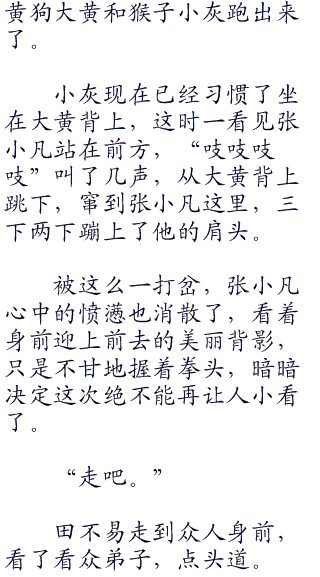 黄狗大黄和猴子小灰跑出来
了。
小灰现在已经习惯了坐
在大黄背上，这时一看见张
小凡站在前方，“吱吱吱
吱”叫了几声，从大黄背上
跳下，窜到张小凡这里，三
下两下蹦上了他的肩头。
被这么一打岔，张小凡
心中的愤懑也消散了，看着
身前迎上前去的美丽背影，
只是不甘地握着拳头，暗暗
决定这次绝不能再让人小看
了。
“走吧。”
田不易走到众人身前，
看了看众弟子，点头道。